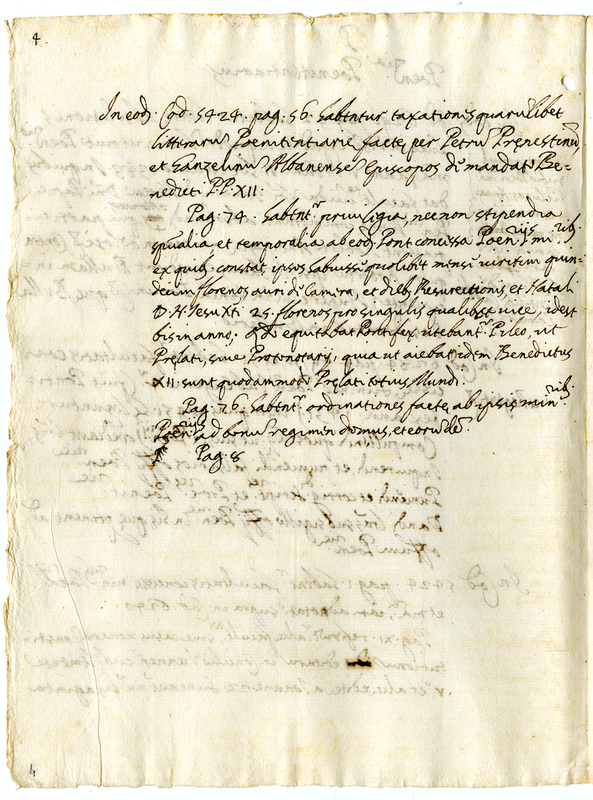 4.
In eod. Cod. 5424. pag. 56. habentur taxationes quarulibet
litteraru Poenitentiarie facte, per Petru Prenestinu,
et Ganzelinu Albanense Episcopos de mandato Be=
nedicti PP. XII.
Pag. 74. habentr privilegia, nec non stipendia
spualia, et temporalia ab eod. Pont. concessa Poen.riis min.ribs
ex quib. constat, ipsos habuisse quolibet mense viritim quin=
decim florenos auri de Camera, et dieb. Resurectionis, et Natali
D. N. Jesu Xti 25. florenos pro singulis qualibet vice, idest
bis in anno, equitabat Pontifex utebantr Pileo, ut
Prelati, sive Protonotarij, quia ut aiebat idem Benedictus
XII. sunt quodammodo Prelati totius Mundi.
Pag. 76. habentr ordinationes facte ab ipsis min.ribs
Poen.riis ad bonu regimen domus, et eorude.
Pag. 8
4